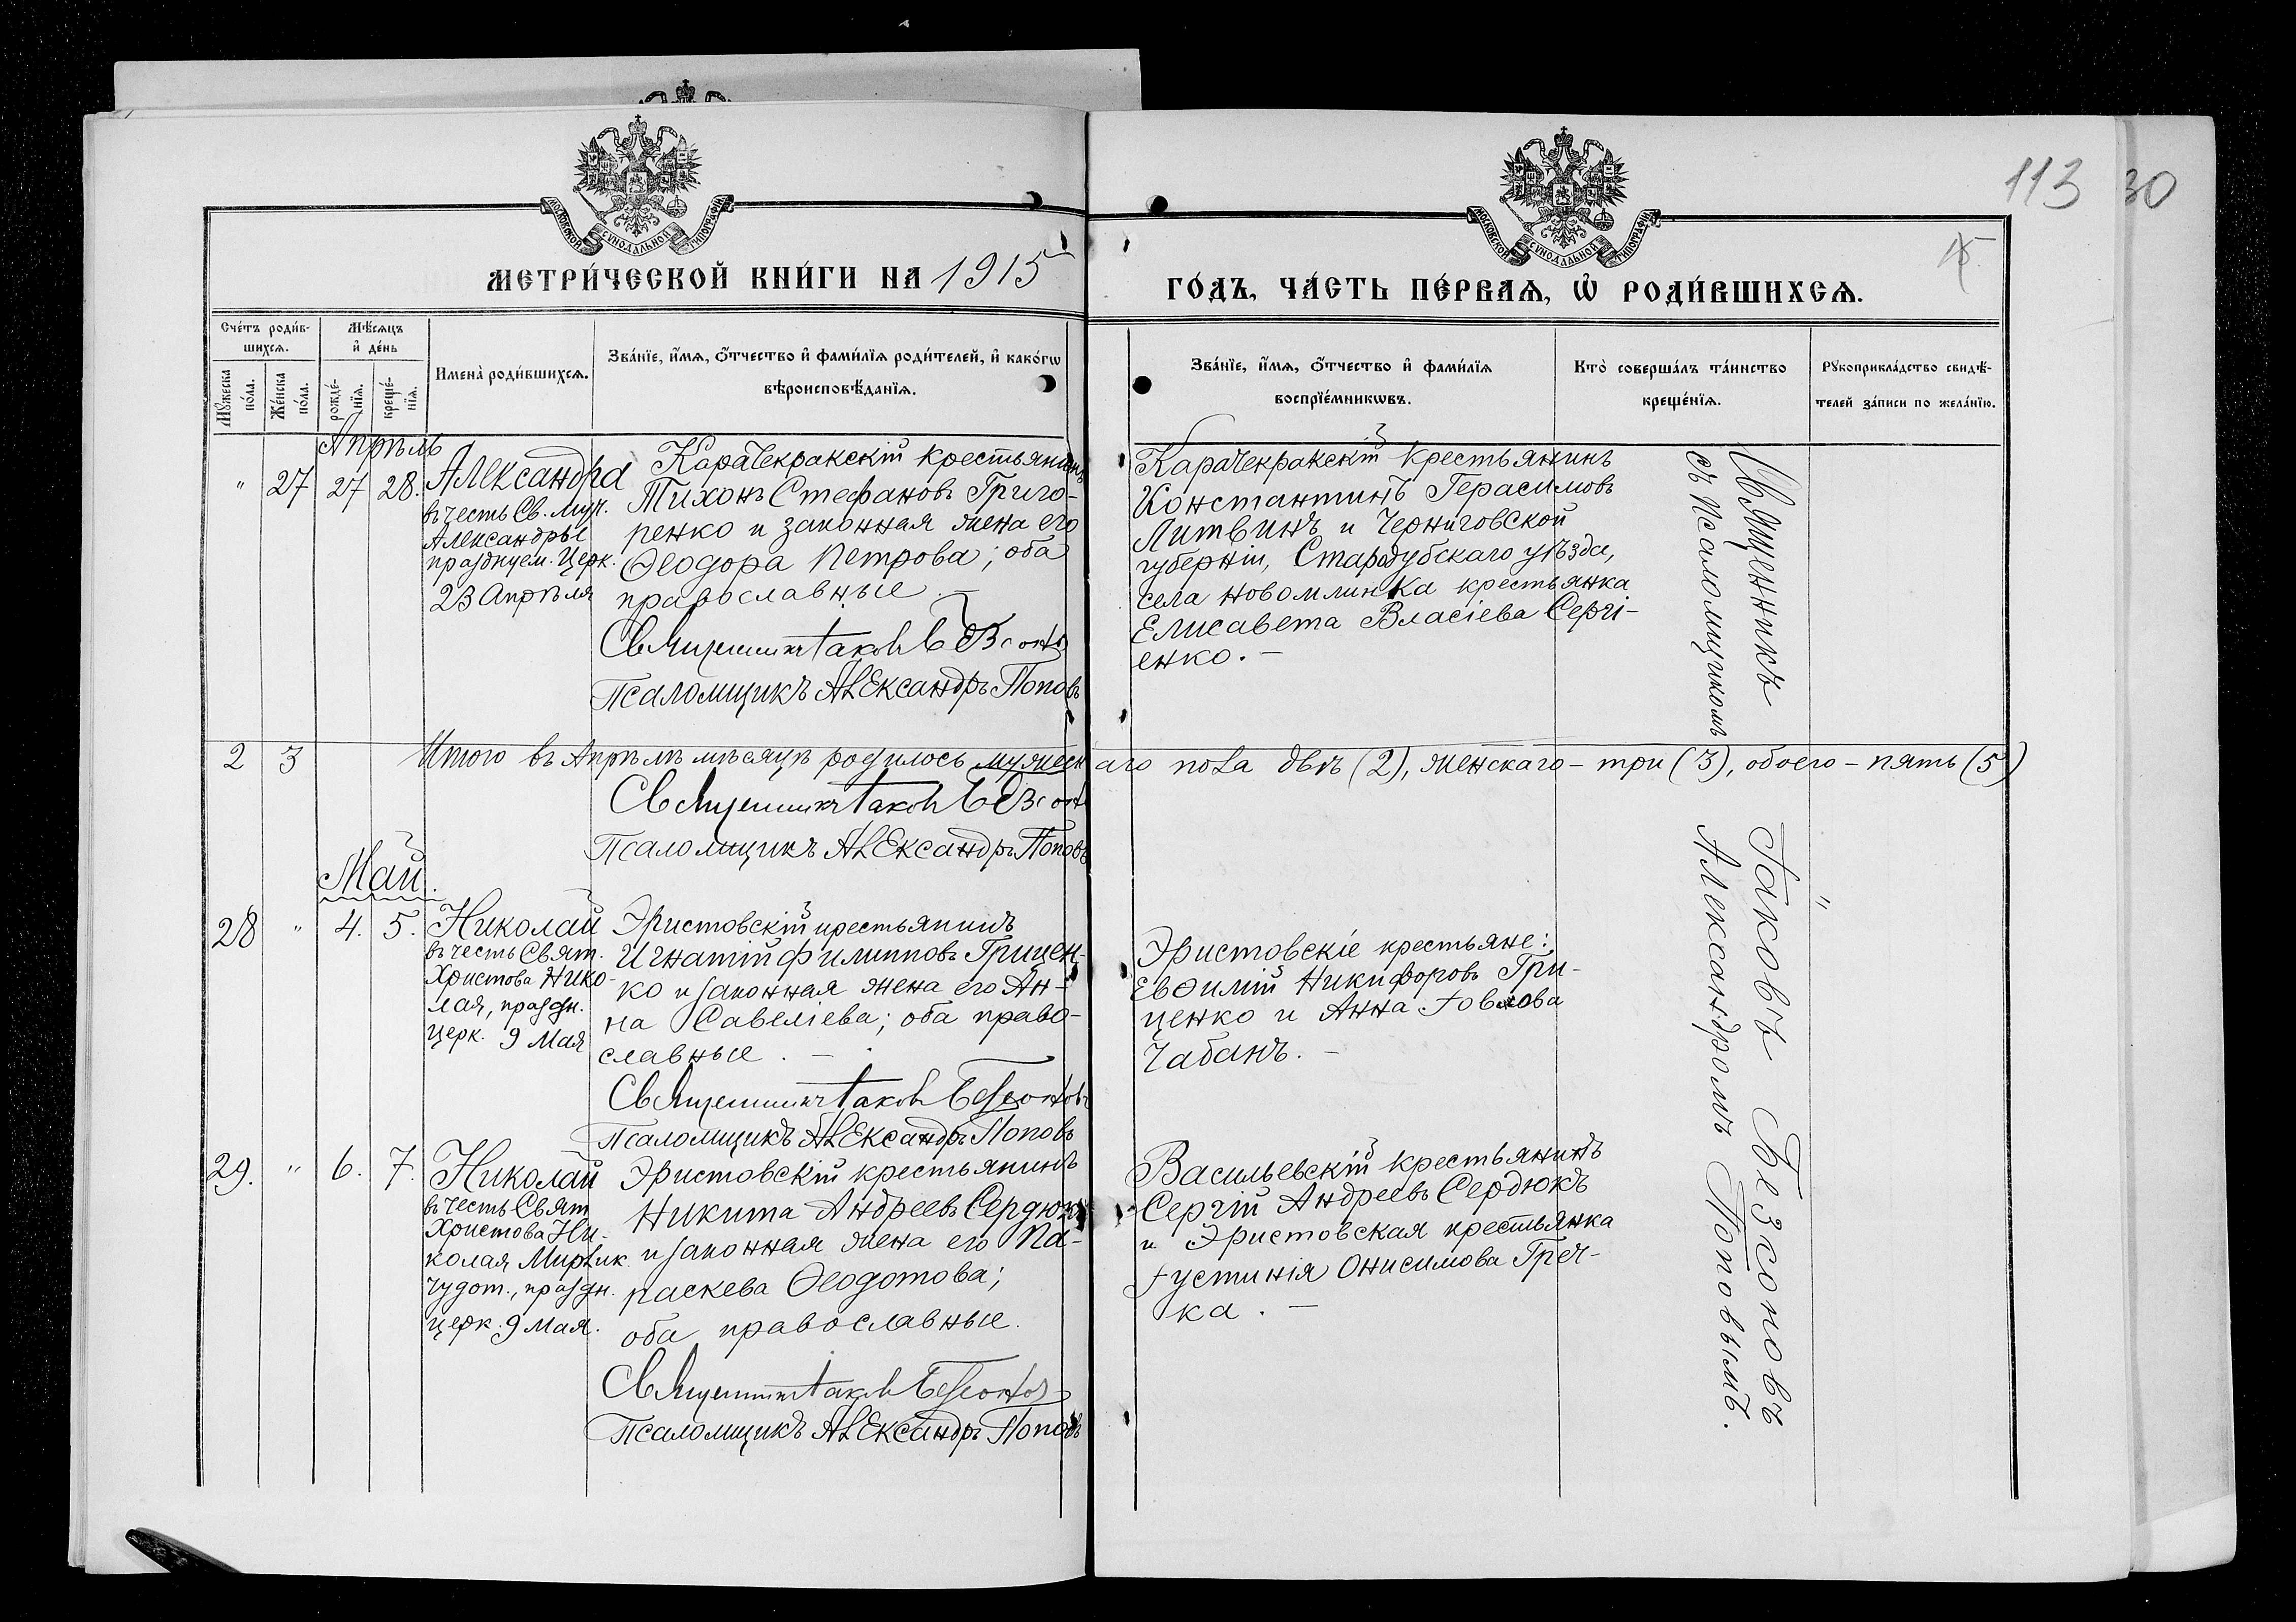 МОСКОВСКОЙ СѴНОДАЛЬНОЙ ТИПОГРАФІИ
МОСКОВСКОЙ СѴНОДАЛЬНОЙ ТИПОГРАФІИ
113
30
15
МЕТРИ́ЧЕСКОЙ КНИ́ГИ НА 1915
ГО́ДЪ, ЧА́СТЬ ПЕ́РВАѦ, Ѡ҆ РОДИ́ВШИХСѦ.
Сче́тъ роди́в-
шихсѧ.
Мѣ́сѧцъ
и҆ де́нь
Мꙋ́жеска
по́ла.
Же́нска
по́ла.
рожде́-
нїѧ.
креще́-
нїѧ.
Имена̀ роди́вшихсѧ.
Зва́нїе, и҆́мѧ, ѻ҆́тчество и҆ фами́лїѧ роди́телей, и҆ како́гѡ
вѣроисповѣ́данїѧ.
Зва́нїе, и҆́мѧ, ѻ҆́тчество и҆ фами́лїѧ
воспрїе́мникѡвъ.
Кто̀ соверша́лъ та́инство
креще́нїѧ.
Рꙋкоприкла́дство свидѣ́-
телей за́писи по жела́нїю.
Апрѣль
" 27 27 28.
Александра
въ честь Св. муч.
Александры
празднуем. Церк.
23 Апрѣля
Карачекракскій крестьянинъ
Тихонъ Стефановъ Григо-
ренко и законная жена его
Ѳеодора Петрова; оба
православные. —
Священникъ Іаковъ Безсоновъ
Псаломщикъ Александръ Поповъ
Карачекракскій крестьянинъ
Константинъ Герасимовъ
Литвинъ и Черниговской
губерніи, Стародубскаго уѣзда,
села Новомлинка крестьянка
Елисавета Власіева Сергі-
енко. —
2 3 Итого въ Апрѣлѣ мѣсяцѣ родилось мужескаго пола двѣ (2), женскаго — три (3), обоего — пять (5)
Священникъ Іаковъ Безсоновъ
Псаломщикъ Александръ Поповъ
Май.
28 " 4. 5.
Николай
въ честь Свят.
Христова Нико-
лая, праздн.
церк. 9 Мая
Эристовскій крестьянинъ
Игнатій Филипповъ Грицен-
ко и законная жена его Ан-
на Савеліева; оба право-
славные. —
Священникъ Іаковъ Безсоновъ
Псаломщикъ Александръ Поповъ
Эристовскіе крестьяне:
Евѳимій Никифоровъ Гри-
ценко и Анна Іовлова
Чабанъ. —
29. " 6. 7.
Николай
въ честь Свят
Христова Ни-
колая Мирлик.
чудот., праздн.
церк. 9 Мая.
Эристовскій крестьянинъ
Никита Андреевъ Сердюкъ
и законная жена его Па-
раскева Ѳеодотова;
оба православные.
Священникъ Іаковъ Безсоновъ
Псаломщикъ Александръ Поповъ
Васильевскій крестьянинъ
Сергій Андреевъ Сердюкъ
и Эристовская крестьянка
Іустинія Онисимова Греч-
ка. —
Священникъ Іаковъ Безсоновъ
съ Псаломщикомъ Александромъ Поповымъ.
"